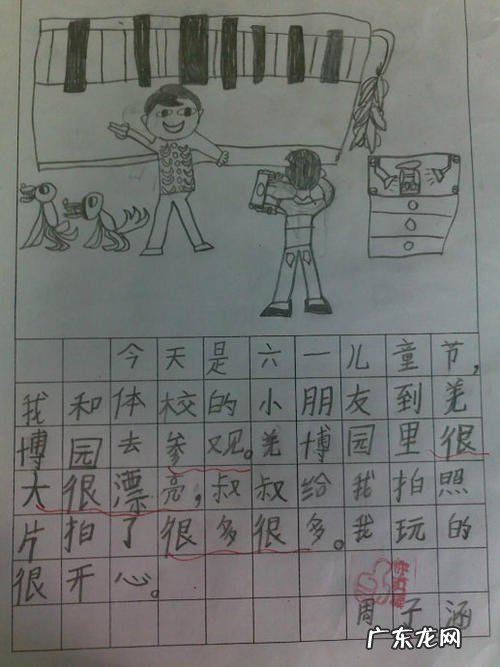 今天是六一儿童节,
我和体校的小朋友到羌
博园去参观。羌博园里很
大很漂亮,叔叔给我拍照
片拍了很多很多。我玩的
很开心。
周子涵
广东龙网